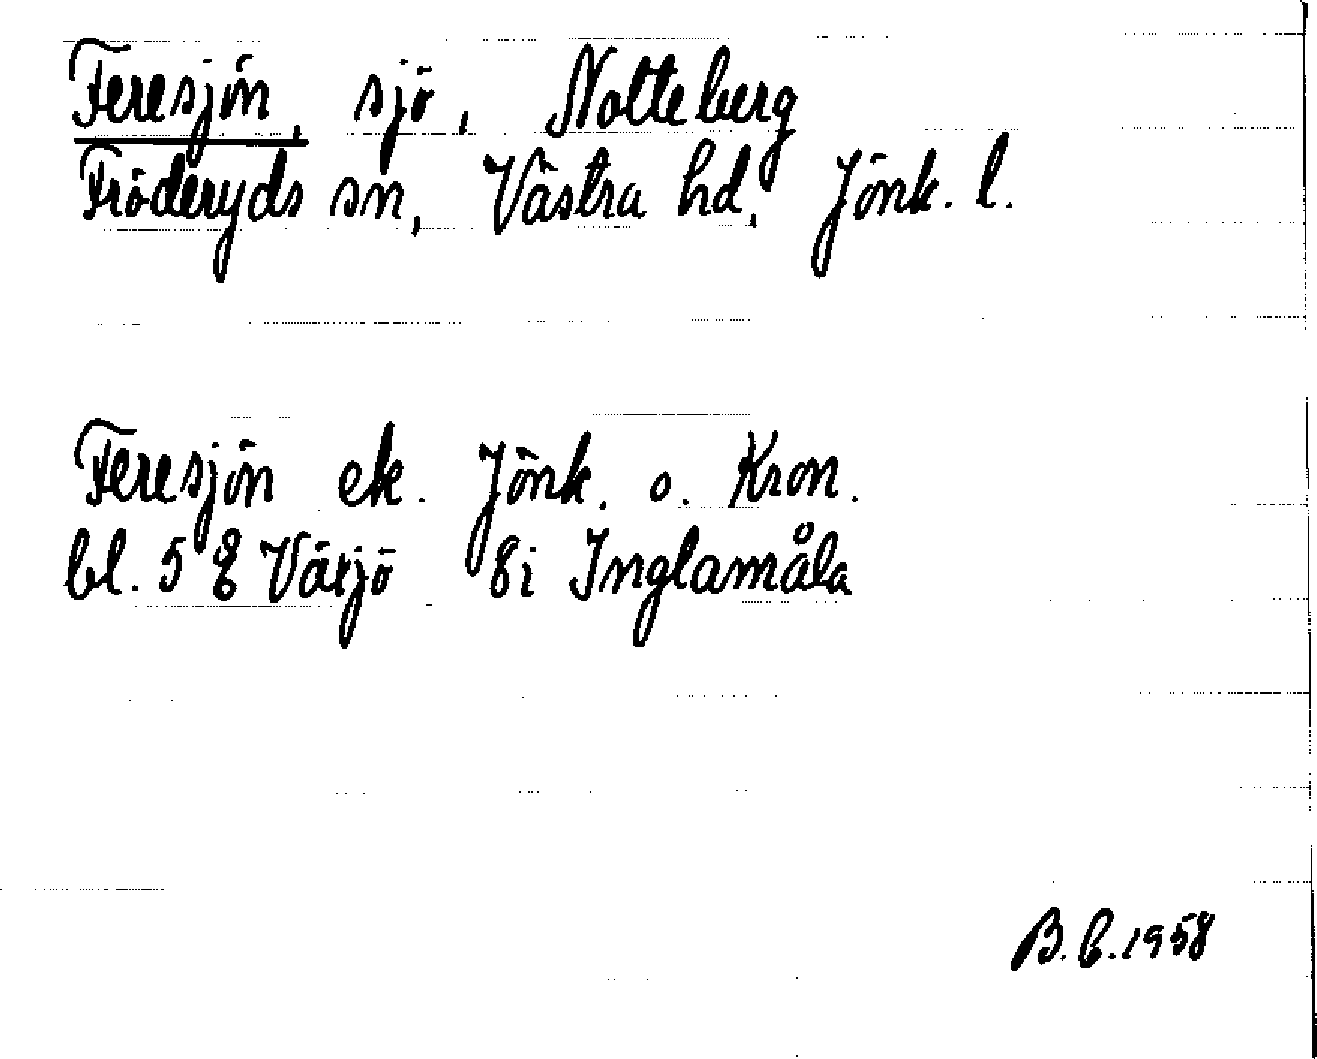 Feresjön, sjö, Notteberg
Fröderyds sn, Västra hd, Jönk. l.
Feresjön ek. Jönk. o. Kron.
bl. 5 E Växjö 8i Inglamåla
B.C.1958